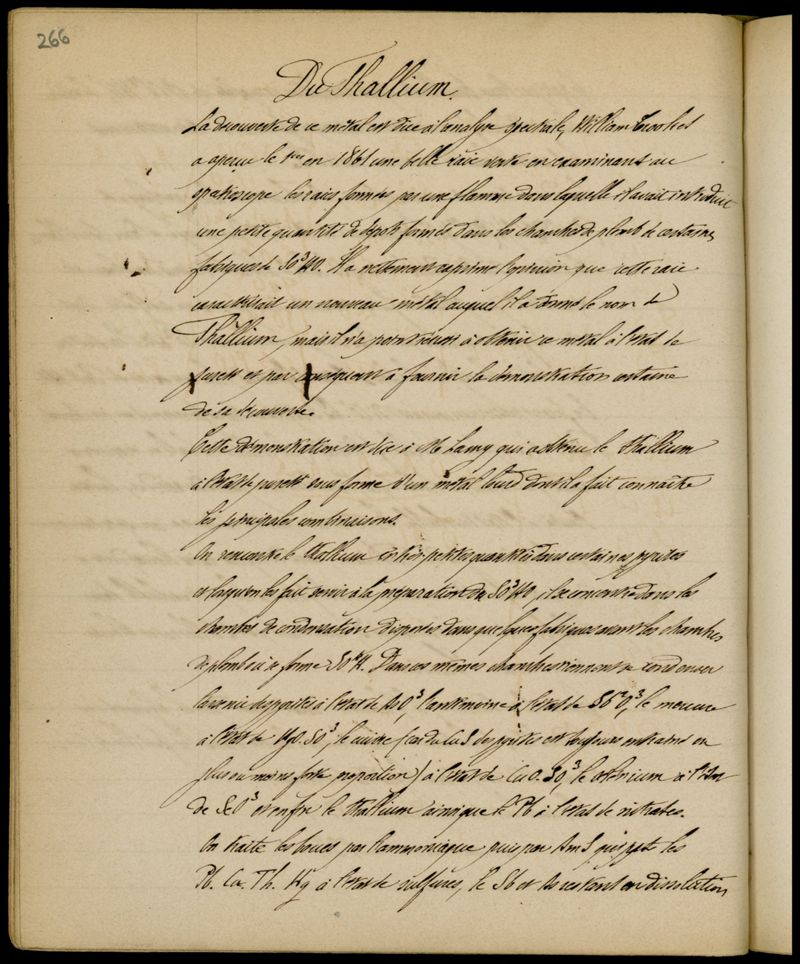 266
Du Thallium.
La découverte de ce métal est due à l'analyse spectrale, William Crookes
a aperçu le 1er en 1861 une belle raie verte en examinant au
spectroscope les raies formées par une flamme dans laquelle il avait introduit
une petite quantité de dépôts formés dans les chambres de plomb de certaines
fabriques de SO³HO. Il a nettement exprimé l'opinion que cette raie
caractérisait un nouveau métal auquel il a donné le nom de
Thallium, mais il n'a point réussi à obtenir ce métal à l'état de
pureté et par conséquent à fournir la démonstration certaine
de sa découverte.
Cette démonstration est due à Mr Lamy qui a obtenu le thallium
à l'état de pureté sous forme d'un métal lourd dont il a fait connaître
les principales combinaisons.
On rencontre le thallium en très petites quantités dans certaines pyrites
et lorsqu'on les fait servir à la préparation du SO³HO, il se concentre dans les
chambres de condensation disposées dans quelques fabriques avant les chambres
de plomb où se forme SO⁴H. Dans ces mêmes chambres viennent se condenser
l'arsenic des pyrites à l'état de AsO³, l'antimoine à l'état de Sb²O³, le mercure
à l'état de HgO.SO³, le cuivre (car du CuS des pyrites est toujours entraîné en
plus ou moins forte proportion) à l'état de CuO.SO³, le sélénium à l'état
de SeO³ et enfin le thallium ainsi que le Pb à l'état de nitrates.
On traite les boues par l'ammoniaque puis par AmS qui ppte les
Pb. Cu. Th. Hg à l'état de sulfures, le Sb et As restant en dissolution